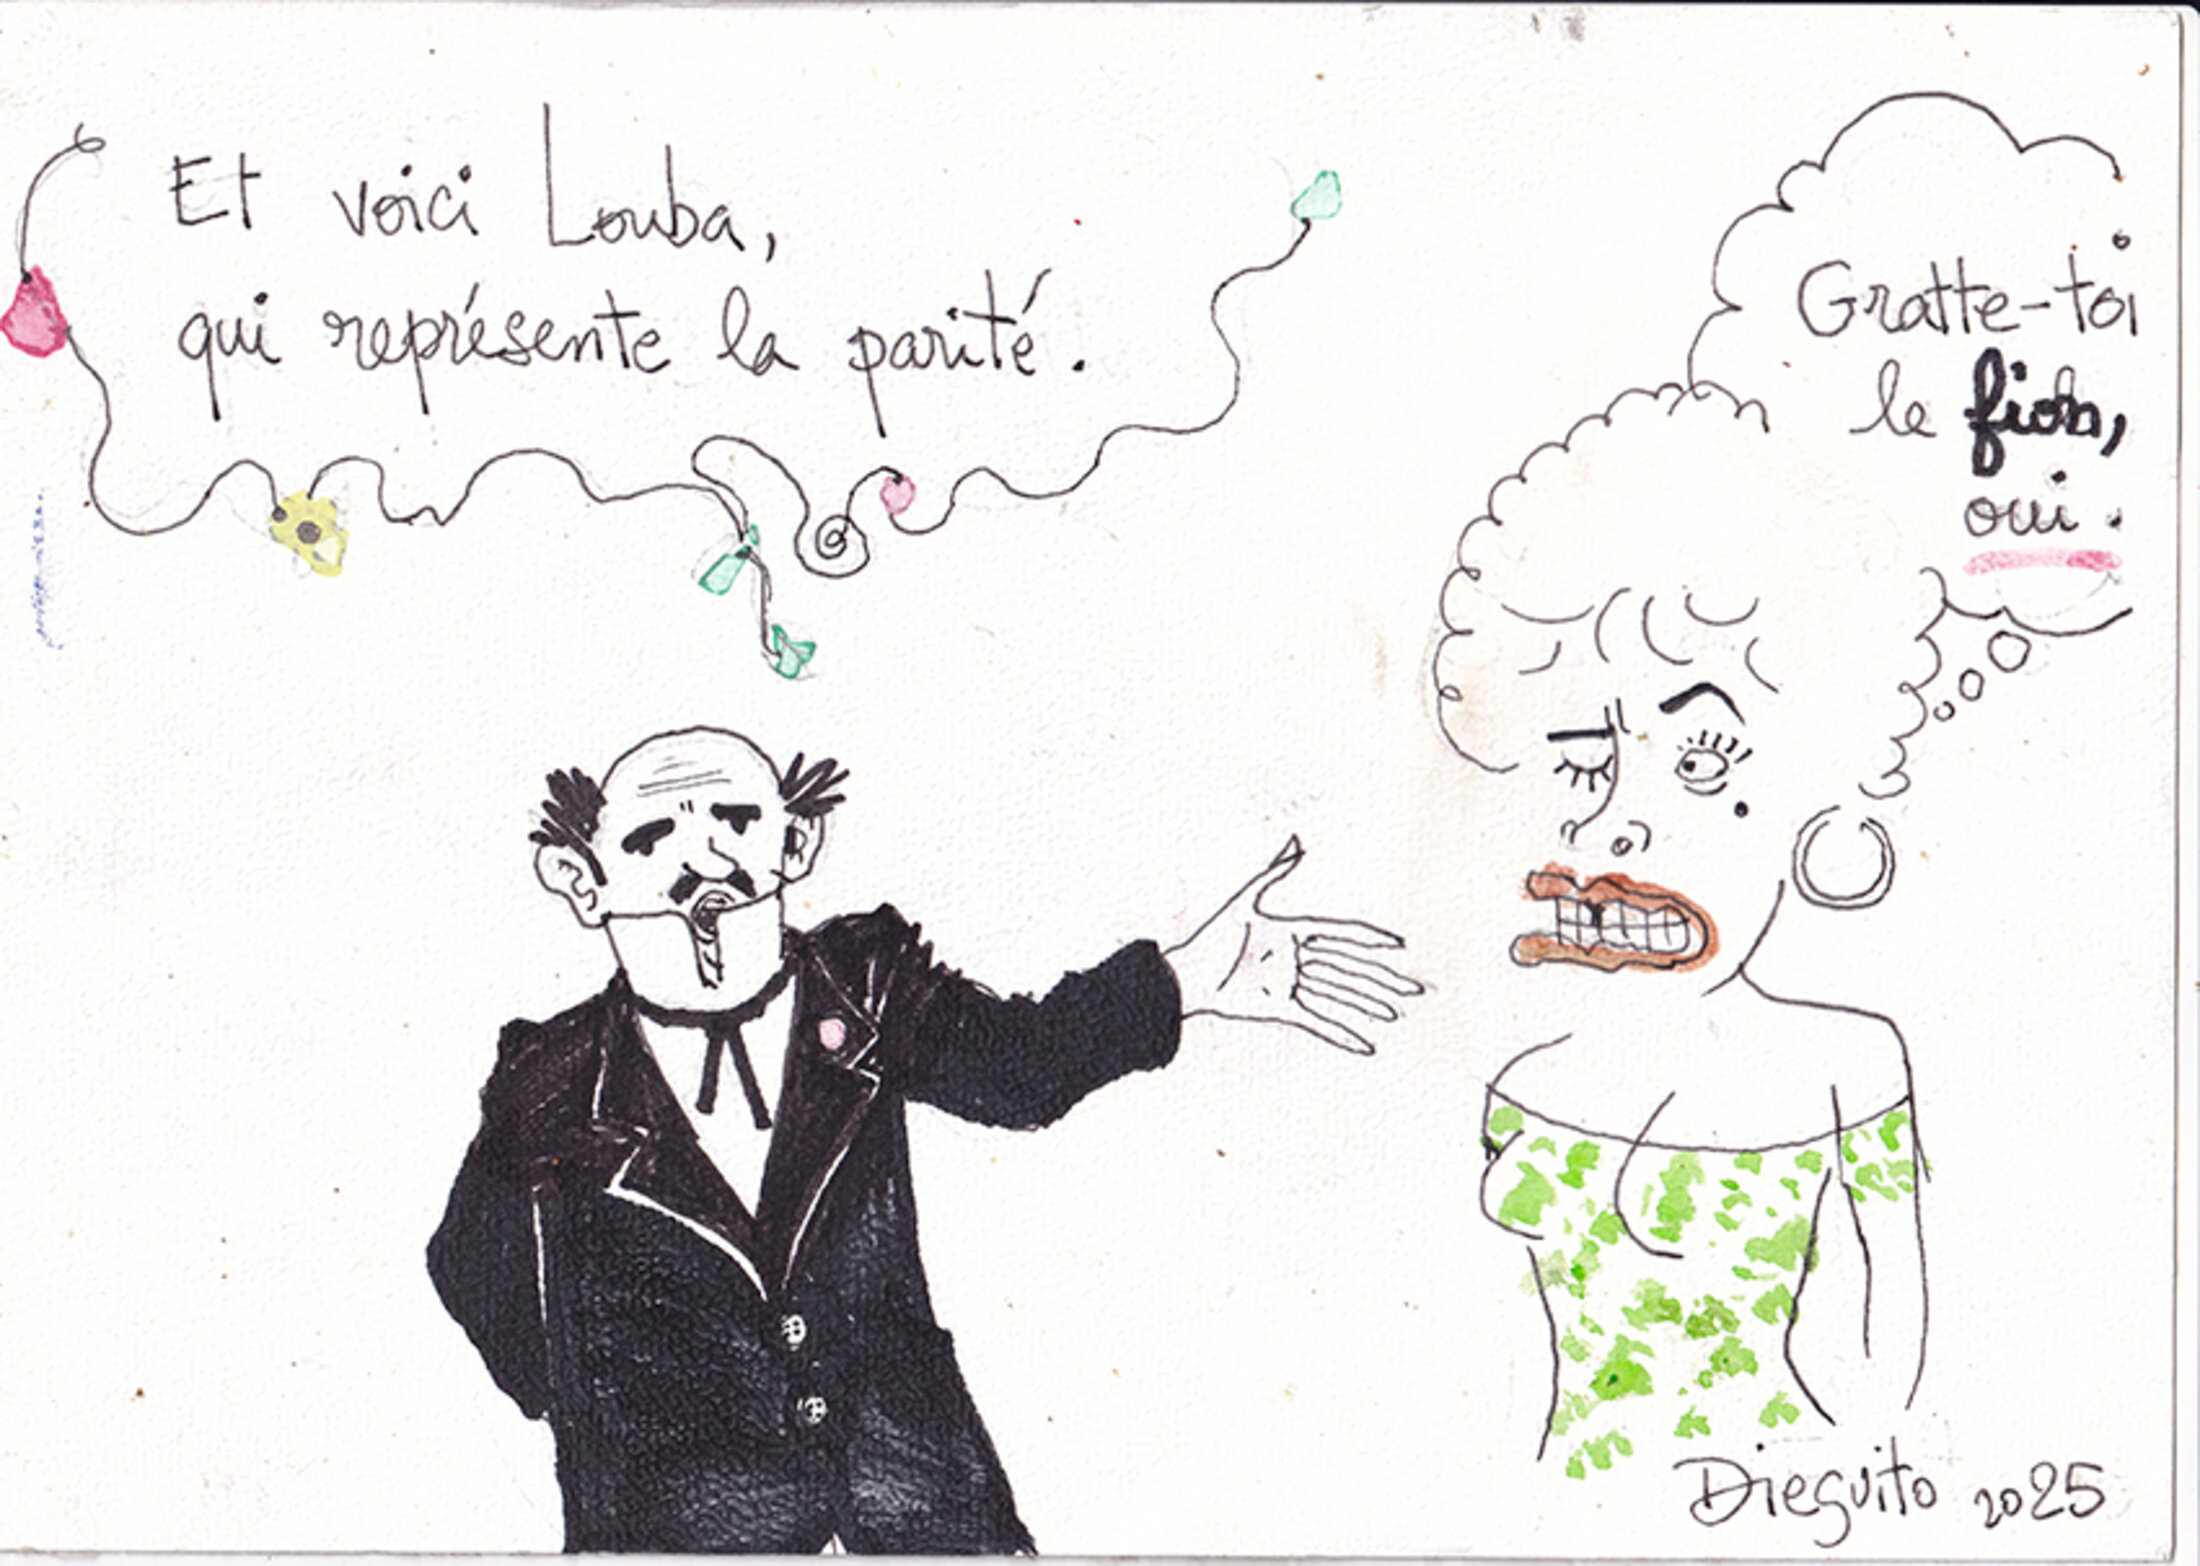 Et voici Louba,
qui représente la parité.
Gratte-toi
le fion,
oui.
Dieguito 2025